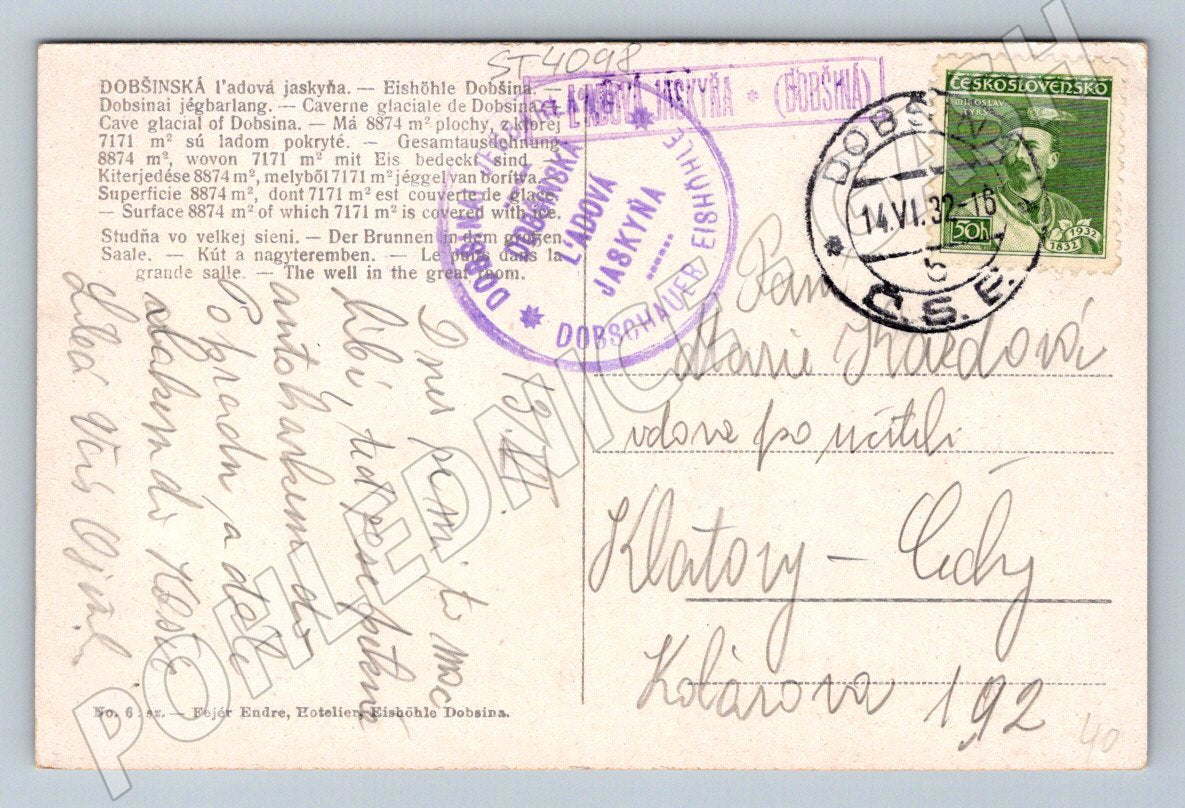 ST4098
DOBŠINSKÁ l'adová jaskyňa. — Eishöhle Dobšina. —
Dobsinai jégbarlang. — Caverne glaciale de Dobsina. —
Cave glacial of Dobsina. — Má 8874 m² plochy, z ktorej
7171 m² sú ladom pokryté. — Gesamtausdehnung
8874 m², wovon 7171 m² mit Eis bedeckt sind. —
Kiterjedése 8874 m², melyből 7171 m² jéggel van borítva. —
Superficie 8874 m², dont 7171 m² est couverte de glace.
— Surface 8874 m² of which 7171 m² is covered with ice.
Studňa vo velkej sieni. — Der Brunnen in dem grozen
Saale. — Kút a nagyteremben. — Le puits dans la
grande salle. — The well in the great room.
ĽADOVÁ JASKYŇA * (DOBŠINÁ)
DOBŠINSKÁ
ĽADOVÁ
JASKYŇA
DOBSCHAUER EISHÖHLE
DOBŠINÁ
14.VI.32-16
b
Č.S.P.
ČESKOSLOVENSKO
MIROSLAV
TYRŠ
50h
1932
1832
13. VI.
Dnes se mi to moc
líbí
autokarem do
Popradu a dále
vlakem do Košic
Líbá Vás
Paní
Marie Kordová
vdova po učiteli
Klatovy — Čechy
Kolárova 192
40
No. 6. sz. — Fejér Endre, Hotelier, Eishöhle Dobsina.
POHLEDNICE